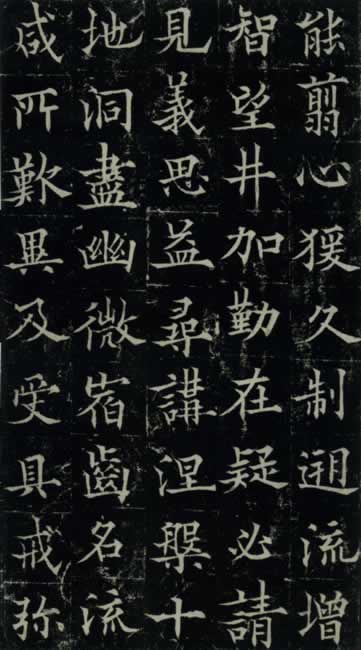 能翦心猨久制遡流增
智望井加勤在疑必請
見義思益尋講涅槃十
地洞盡幽微宿齒名流
咸所歎異及受具戒弥